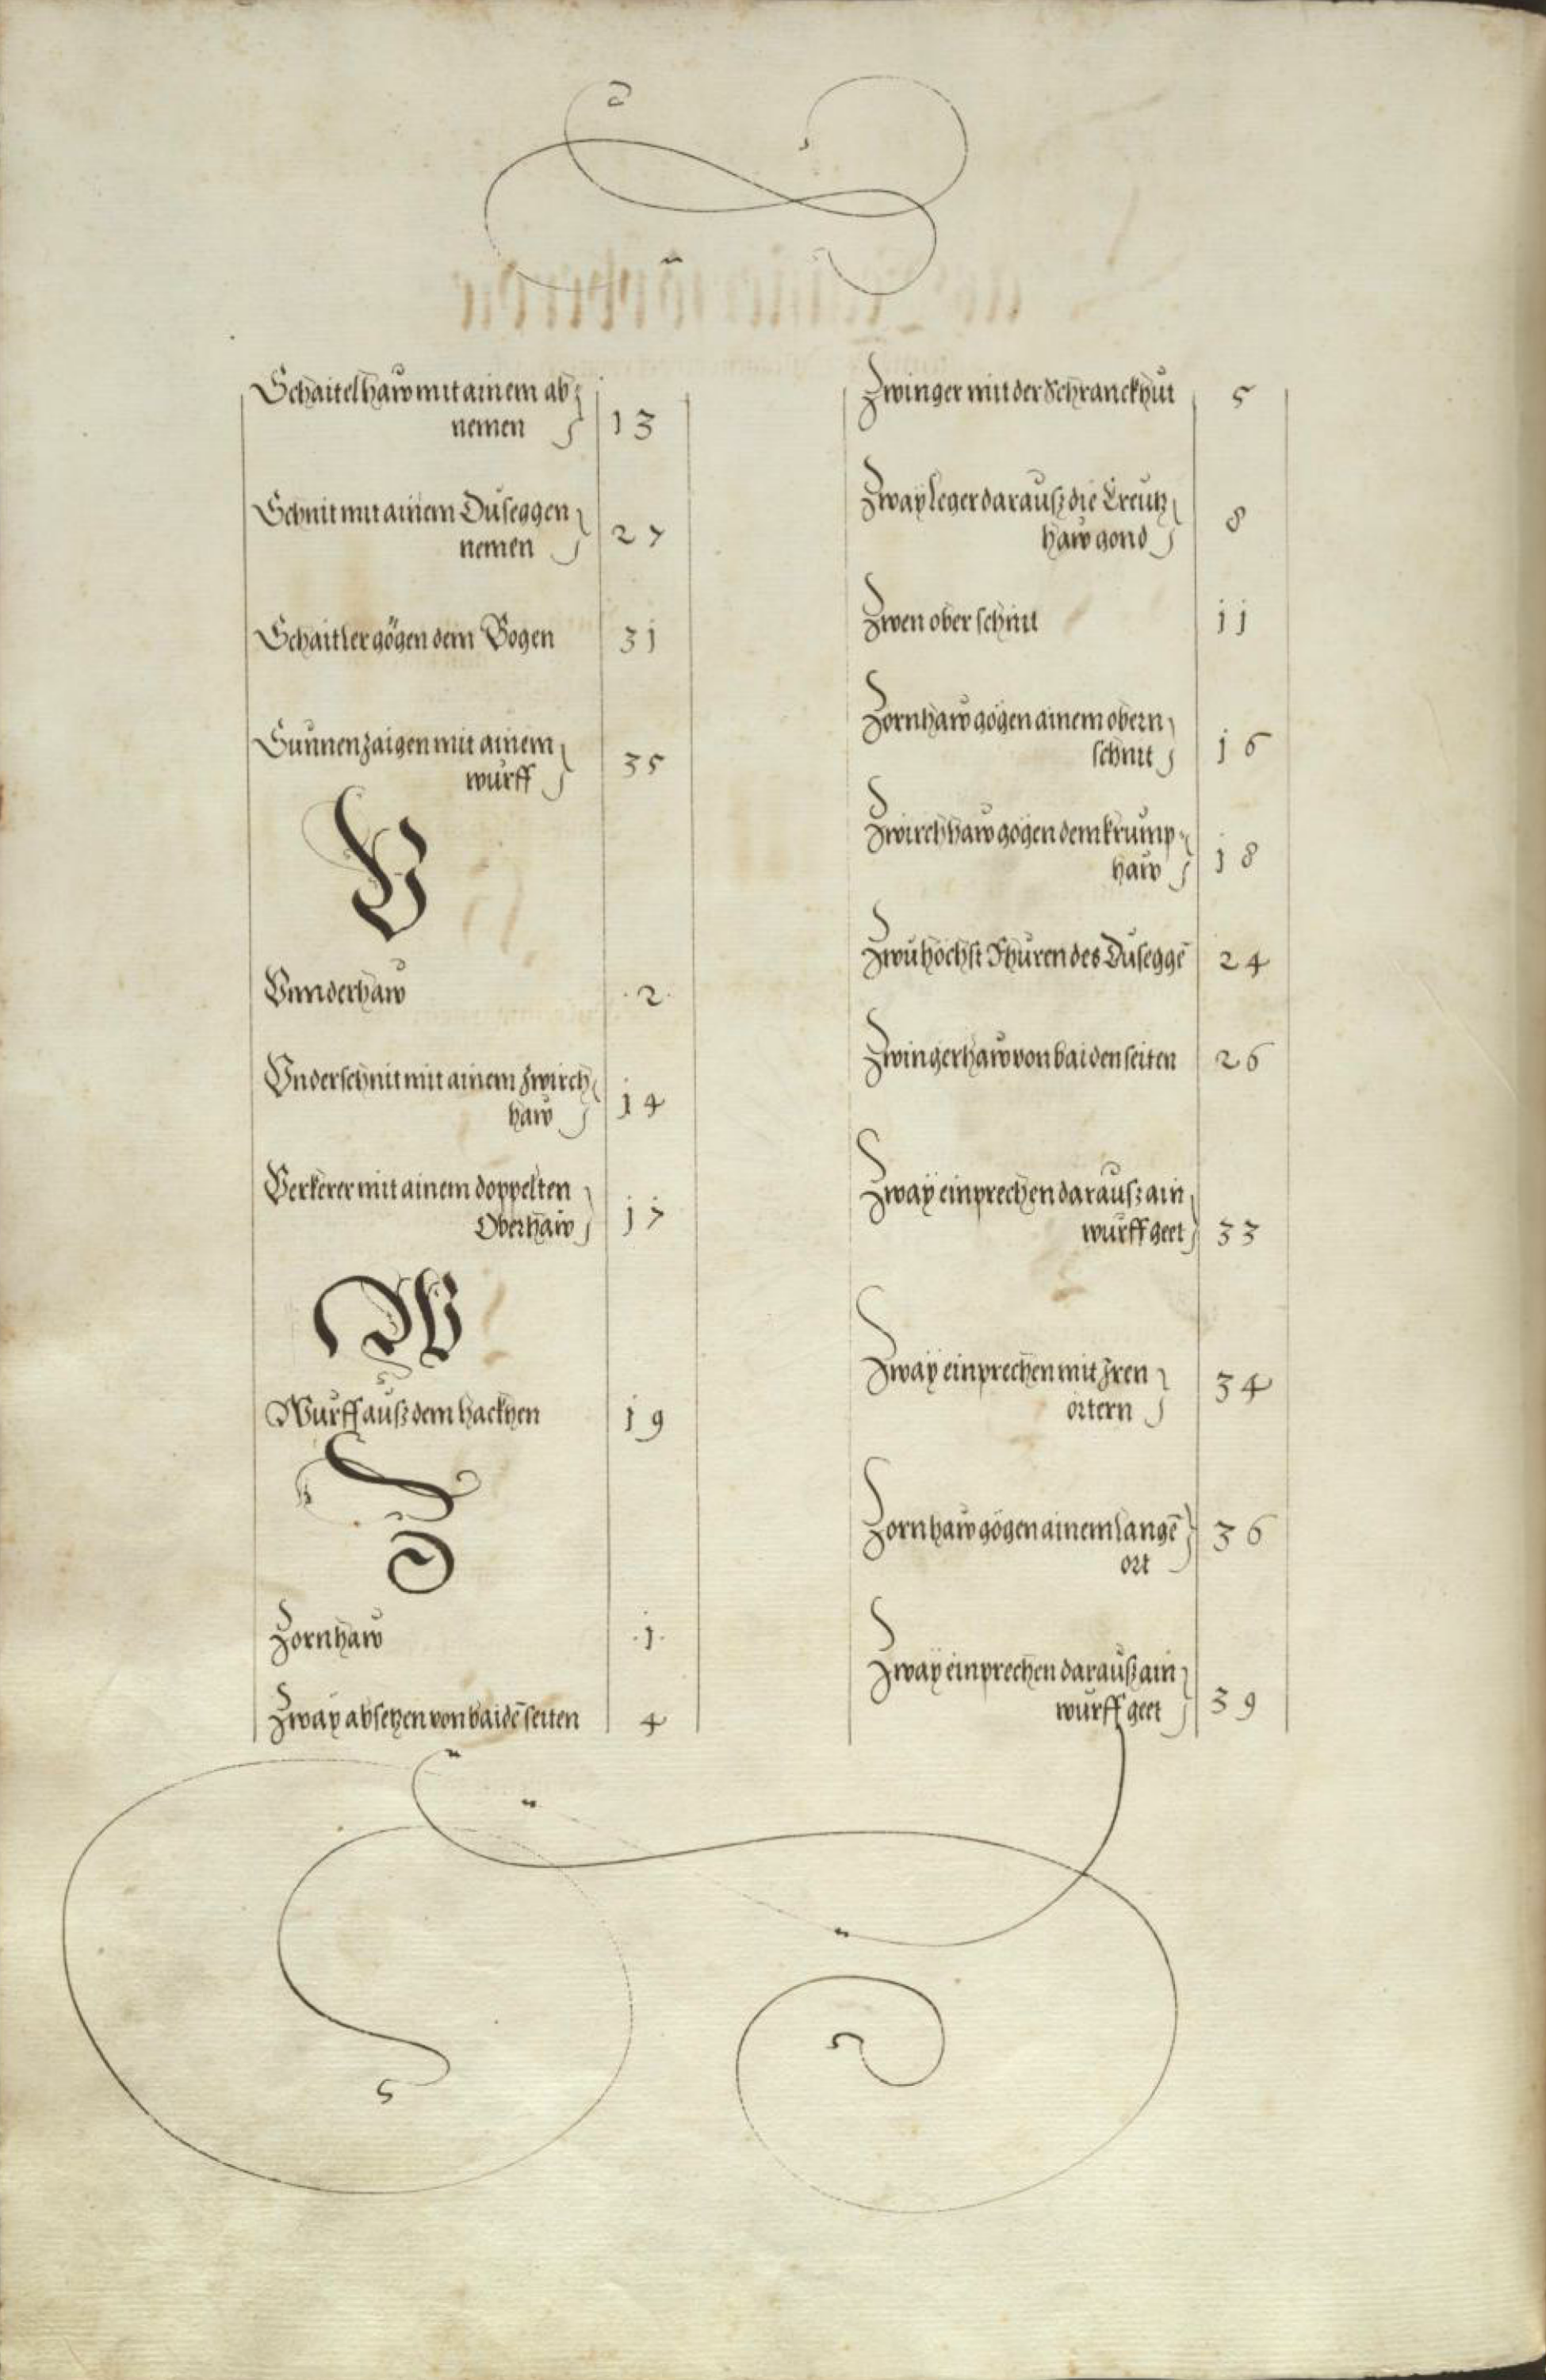 Schaitelhaw mit ainem ab
nemen 13
Schnit mit ainem Duseggen
nemen 27
Schaitler gögen dem Bogen 31
Sunnenzaigen mit ainem
wurff 35
V
Vnnderhaw .2.
Vnderschnit mit ainem Zwirch
haw 14
Verkerer mit ainem doppelten
Oberhaw 17
W
Wurff ausz dem hackhen 19
Z
Zornhaw .1.
Zway absetzen von baidē seiten 4
Zwinger mit der Schranckhut 5
Zway leger darausz die Creutz
haw gond 8
Zwen ober schnit 11
Zornhaw gögen ainem obern
schnit 16
Zwirchhaw gögen dem krump
haw 18
Zwu höchst Fhüren des Duseggē 24
Zwingerhaw von baiden seiten 26
Zway einprechen darausz ain
wurff geet 33
Zway einprechen mit Iren
örtern 34
Zornhaw gögen ainem langē
ort 36
Zway einprechen darausz ain
wurff geet 39